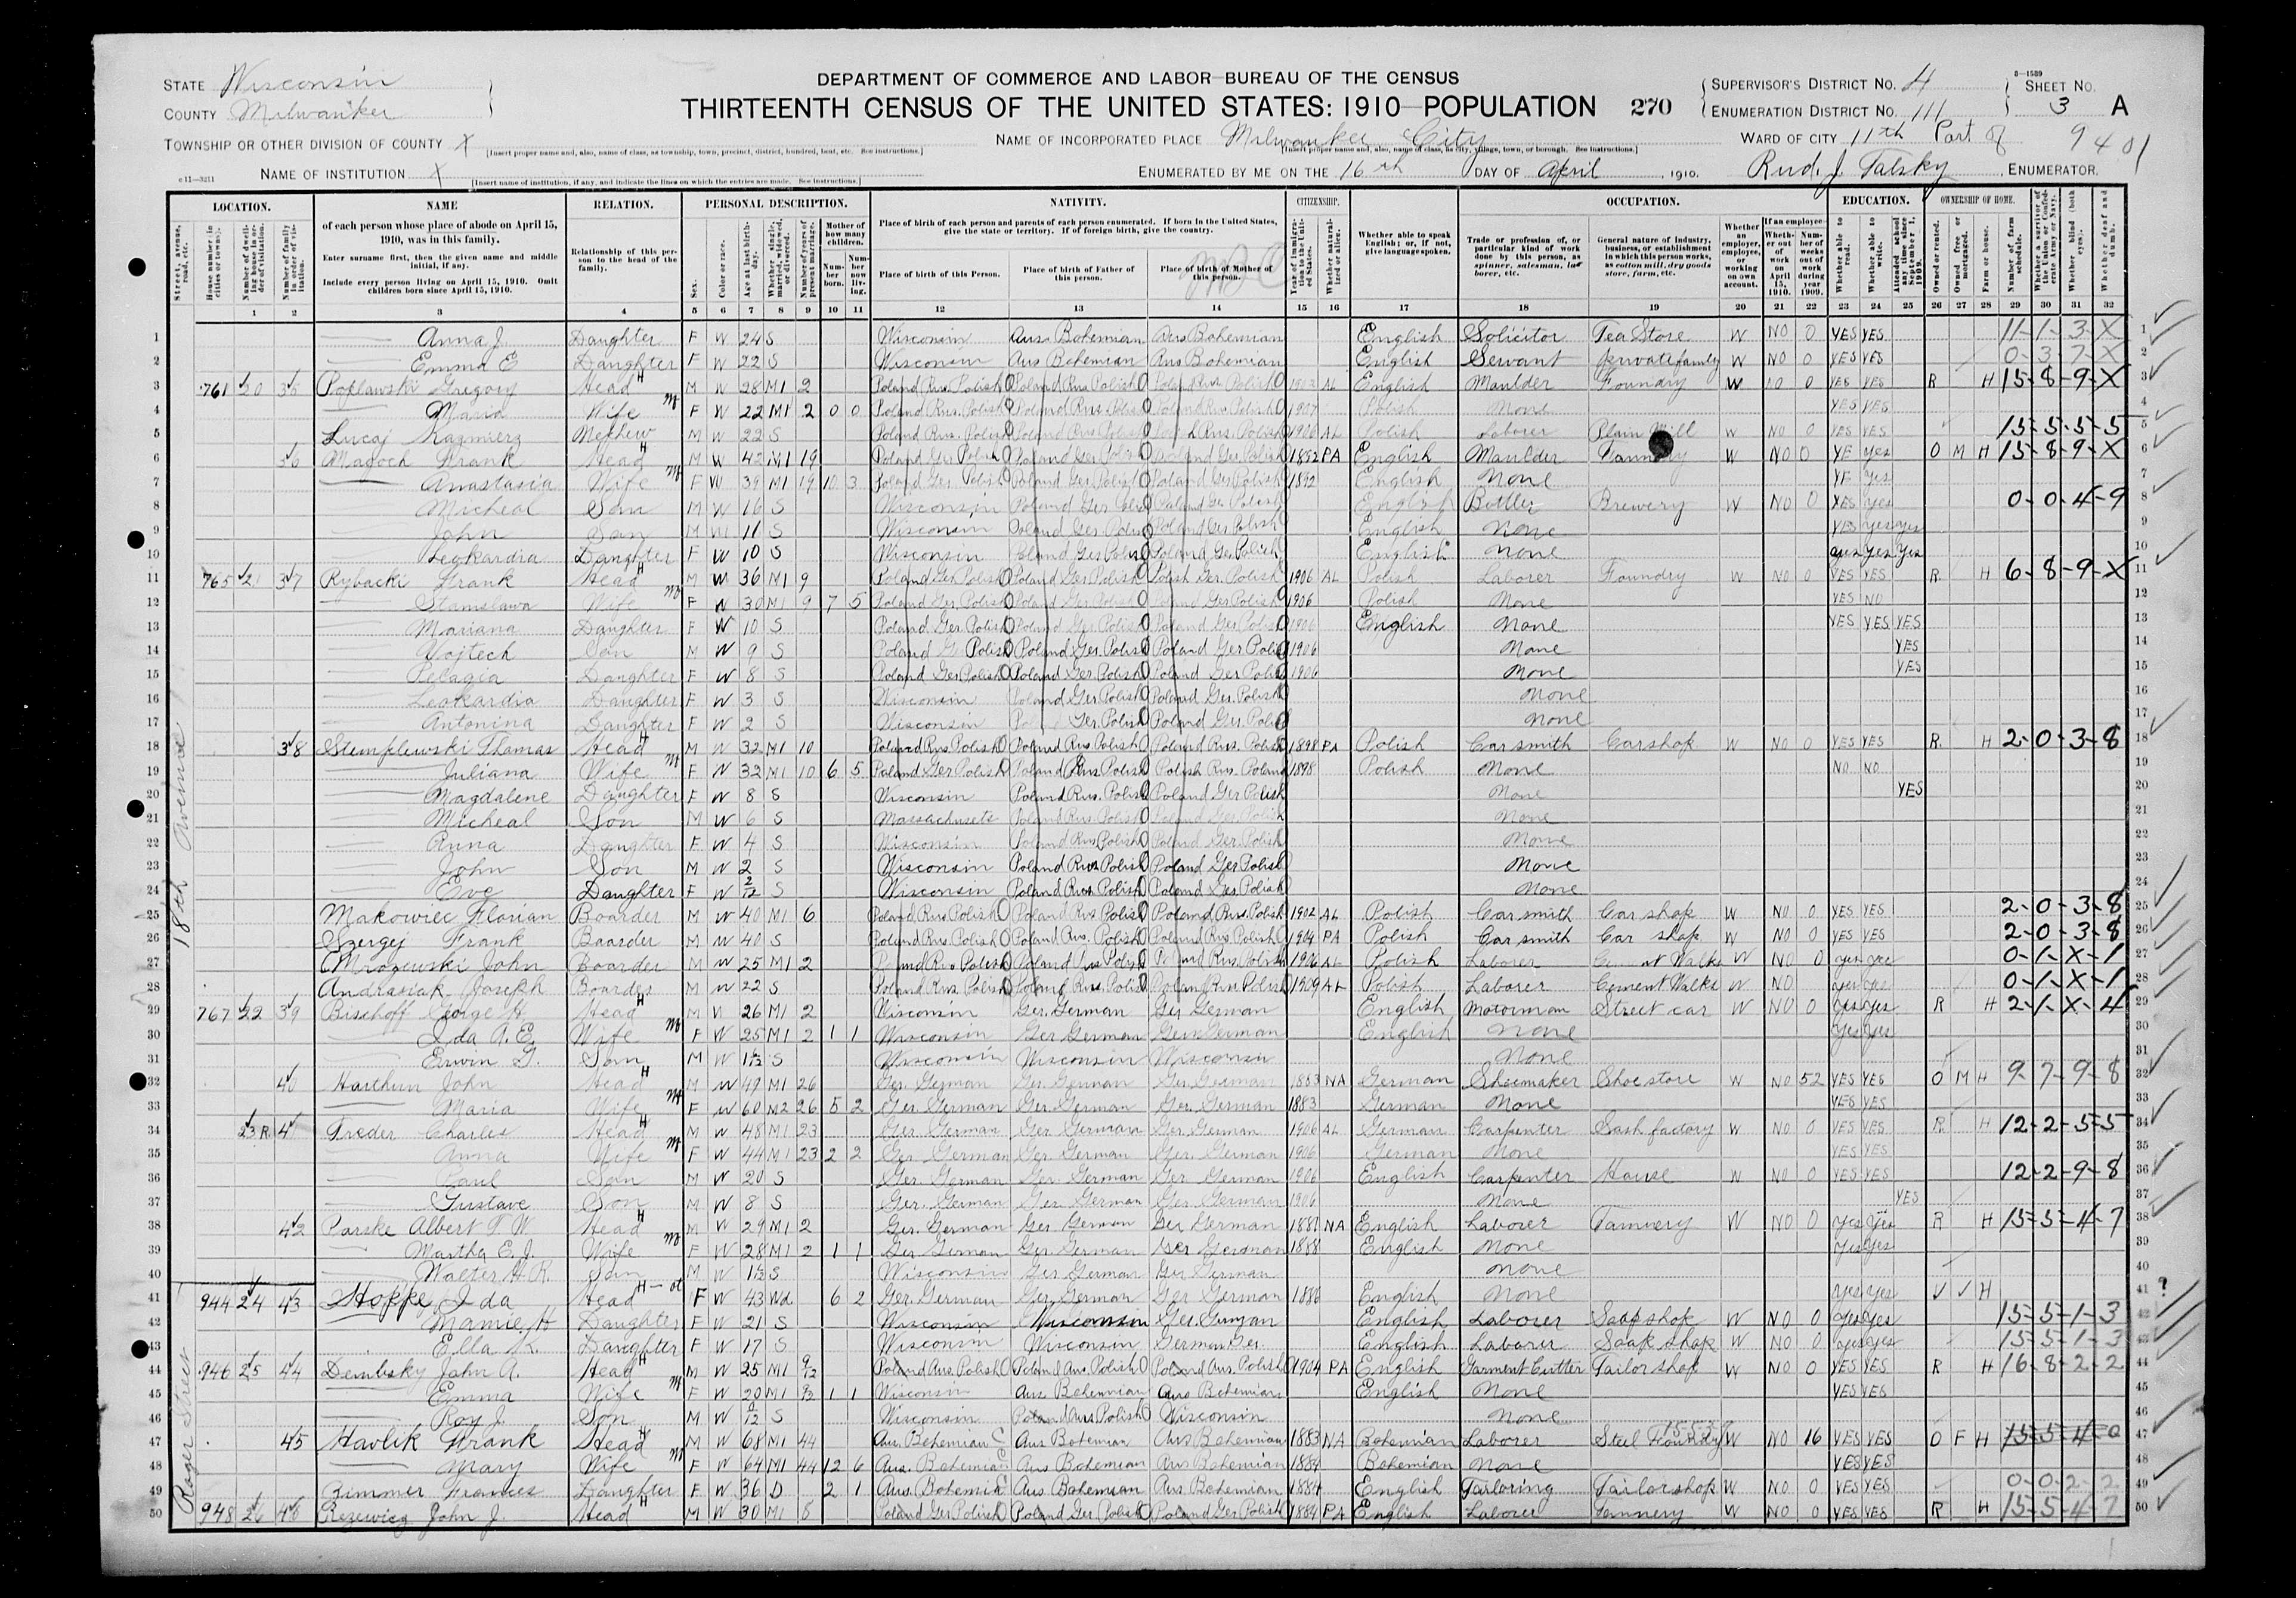 STATE Wisconsin
COUNTY Milwaukee
TOWNSHIP OR OTHER DIVISION OF COUNTY X
[Insert proper name and, also, name of class, as township, town, precinct, district, hundred, beat, etc. See instructions.]
NAME OF INSTITUTION X
[Insert name of institution, if any, and indicate the lines on which the entries are made. See instructions.]
DEPARTMENT OF COMMERCE AND LABOR—BUREAU OF THE CENSUS
THIRTEENTH CENSUS OF THE UNITED STATES: 1910—POPULATION 270
NAME OF INCORPORATED PLACE Milwaukee City
[Insert proper name and, also, name of class, as city, village, town, or borough. See instructions.]
ENUMERATED BY ME ON THE 16th DAY OF April, 1910.
SUPERVISOR'S DISTRICT NO. 4
ENUMERATION DISTRICT NO. 111
8—1589
SHEET NO. 3 A
WARD OF CITY 11th Part of 9401
Rud. J. Talsky, ENUMERATOR.
LOCATION. NAME RELATION. PERSONAL DESCRIPTION. NATIVITY. CITIZENSHIP. OCCUPATION. EDUCATION. OWNERSHIP OF HOME.
of each person whose place of abode on April 15, 1910, was in this family.
Enter surname first, then the given name and middle initial, if any.
Include every person living on April 15, 1910. Omit children born since April 15, 1910.
Relationship of this person to the head of the family.
Place of birth of each person and parents of each person enumerated. If born in the United States, give the state or territory. If of foreign birth, give the country.
Place of birth of this Person. Place of birth of Father of this person. Place of birth of Mother of this person.
Whether able to speak English; or, if not, give language spoken.
1 2 3 4 5 6 7 8 9 10 11 12 13 14 15 16 17 18 19 20 21 22 23 24 25 26 27 28 29 30 31 32
18th Avenue
1 Anna J. Daughter F W 24 S Wisconsin Aus Bohemian Aus Bohemian English Solicitor Tea Store W NO 0 YES YES 11-1-3-X
2 Emma E Daughter F W 22 S Wisconsin Aus Bohemian Aus Bohemian English Servant Private family W NO 0 YES YES 0-3-7-X
3 761 20 35 Poplawski Gregory Head M W 28 M1 2 Poland Rus. Polish Poland Rus Polish Poland Rus. Polish 1903 AL English Moulder Foundry W NO 0 YES YES R H 15-8-9-X
4 Maria Wife F W 22 M1 2 0 0 Poland Rus. Polish Poland Rus. Polish Poland Rus Polish 1907 Polish None YES YES
5 Lucaj Kazmierz Nephew M W 22 S Poland Rus. Polish Poland Rus Polish Rus. Polish 1906 AL Polish Laborer Plain Mill W NO 0 YES YES 15-5-5-5
6 36 Magoch Frank Head M W 42 M1 19 Poland Ger Polish Poland Ger Polish Poland Ger Polish 1892 PA English Moulder W NO 0 yes O M H 15-8-9-X
7 Anastasia Wife F W 39 M1 19 10 3 Poland Ger Polish Poland Ger Polish Poland Ger Polish 1892 English None Yes
8 Micheal Son M W 16 S Wisconsin Poland Ger. Poland Ger Polish English Bottler Brewery W NO 0 YES yes 0-0-4-9
9 John Son M W 11 S Wisconsin Poland Ger. Polish Poland Ger Polish English None YES yes yes
10 Leokardia Daughter F W 10 S Wisconsin Poland Ger Polish Poland Ger Polish English None yes yes yes
11 765 21 37 Rybacki Frank Head M W 36 M1 9 Poland Ger Polish Poland Ger Polish Polish Ger. Polish 1906 AL Polish Laborer Foundry W NO 0 YES YES R H 6-8-9-X
12 Stanislawa Wife F W 30 M1 9 7 5 Poland Ger Polish Poland Ger Polish Poland Ger Polish 1906 Polish None YES NO
13 Mariana Daughter F W 10 S Poland Ger. Polish Poland Ger Polish Poland Ger Polish 1906 English None YES YES YES
14 Vojtech Son M W 9 S Poland Ger Polish Poland Ger. Polish Poland Ger Polish 1906 None YES
15 Pelagia Daughter F W 8 S Poland Ger Polish Poland Ger. Polish Poland Ger Polish 1906 None YES
16 Leokardia Daughter F W 3 S Wisconsin Poland Ger Polish Poland Ger. Polish None
17 Antonina Daughter F W 2 S Wisconsin Ger. Polish Poland Ger. Polish None
18 38 Stemplewski Thomas Head M W 32 M1 10 Poland Rus Polish Poland Rus Polish Poland Rus. Polish 1898 PA Polish Car smith Car shop W NO 0 YES YES R. H 2-0-3-8
19 Juliana Wife F W 32 M1 10 6 5 Poland Ger Polish Poland Rus Polish Polish Rus. Poland 1898 Polish None NO NO
20 Magdalene Daughter F W 8 S Wisconsin Poland Rus. Polish Poland Ger Polish None YES
21 Micheal Son M W 6 S Massachusets Poland Rus. Polish Poland Ger. Polish None
22 Anna Daughter F W 4 S Wisconsin Poland Rus Polish Poland Ger. Polish None
23 John Son M W 2 S Wisconsin Poland Rus Polish Poland Ger Polish None
24 Eve Daughter F W 2/12 S Wisconsin Poland Rus Polish Poland Ger. Polish None
25 Makowiec Florian Boarder M W 40 M1 6 Poland Rus Polish Poland Rus Polish Poland Rus. Polish 1902 AL Polish Car smith Car shop W NO 0 YES YES 2-0-3-8
26 Szergej Frank Boarder M W 40 S Poland Rus. Polish Poland Rus. Polish Poland Rus Polish 1904 PA Polish Car smith Car shop W NO 0 YES YES 2-0-3-8
27 Mrozewski John Boarder M W 25 M1 2 Poland Rus Polish Poland Rus Polish Poland Rus. Polish 1906 AL Polish Laborer Cement Walks W NO 0 yes yes 0-1-X-1
28 Andrasiak Joseph Boarder M W 22 S Poland Rus Polish Poland Rus. Polish Poland Rus Polish 1909 AL Polish Laborer Cement Walks W NO yes yes 0-1-X-1
29 767 22 39 Bischoff George H. Head M W 26 M1 2 Wisconsin Ger. German Ger German English Motorman Street car W NO 0 yes yes R H 2-1-X-4
30 Ida A. E. Wife F W 25 M1 2 1 1 Wisconsin Ger German Ger German English None yes yes
31 Erwin G. Son M W S Wisconsin Wisconsin Wisconsin None
32 40 Harthun John Head M W 49 M1 26 Ger. German Ger. German Ger. German 1883 NA German Shoemaker Shoe store W NO 52 YES YES O M H 9-7-9-8
33 Maria Wife F W 60 M2 26 5 2 Ger. German Ger. German Ger. German 1883 German None YES YES
34 23 R Treder Charles Head M W 48 M1 23 Ger German Ger German Ger German 1906 AL German Carpenter Sash factory W NO 0 YES YES R H 12-2-5-5
35 Anna Wife F W 44 M1 23 2 2 Ger. German Ger. German Ger. German 1906 German None YES YES
36 Paul Son M W 20 S Ger. German Ger. German Ger German 1906 English Carpenter House W NO 0 YES YES 12-2-9-8
37 Gustave Son M W 8 S Ger. German Ger. German Ger. German 1906 None YES
38 42 Parske Albert F W. Head M W 29 M1 2 Ger. German Ger German Ger German 1881 NA English Laborer Tannery W NO 0 yes yes R H 15-5-4-7
39 Martha E. J. Wife F W 28 M1 2 1 1 Ger. German Ger. German Ger German 1888 English None yes yes
40 Walter H. R. Son M W S Wisconsin Ger German Ger German None
Roger Street
41 944 24 43 Hoppe, Ida Head F W 43 Wd 6 2 Ger. German Ger. German Ger German 1886 English None yes yes H ?
42 Mamie H Daughter F W 21 S Wisconsin Wisconsin Ger. German English Laborer Soap shop W NO 0 yes yes 15-5-1-3
43 Ella K. Daughter F W 17 S Wisconsin Wisconsin German Ger. English Laborer Soap shop W NO 0 yes yes 15-5-1-3
44 946 25 44 Dembsky John A. Head M W 25 M1 9/12 Poland Aus. Polish Poland Aus. Polish Poland Aus. Polish 1904 PA English Garment Cutter Tailor shop W NO 0 YES YES R H 16-8-2-2
45 Emma Wife F W 20 M1 1 1 Wisconsin Aus Bohemian Aus Bohemian English None YES YES
46 Roy J. Son M W S Wisconsin Poland Aus Polish Wisconsin None
47 45 Havlik Frank Head M W 68 M1 44 Aus Bohemian Aus Bohemian Aus Bohemian 1883 NA Bohemian Laborer Steel Foundry W NO 16 YES YES O F H 15-5-4-0
48 Mary Wife F W 64 M1 44 12 6 Aus. Bohemian Aus Bohemian Aus Bohemian 1884 Bohemian None YES YES
49 Zimmer Frances Daughter F W 36 D 2 1 Aus. Bohemia Aus Bohemian Aus Bohemian 1884 English Tailoring Tailor shop W NO 0 YES YES 0-0-2-2
50 948 26 46 Rezewicz John J. Head M W 30 M1 8 Poland Ger Polish Poland Ger Polish Poland Ger Polish 1884 PA English Laborer Tannery W NO 0 YES YES R H 15-5-4-7